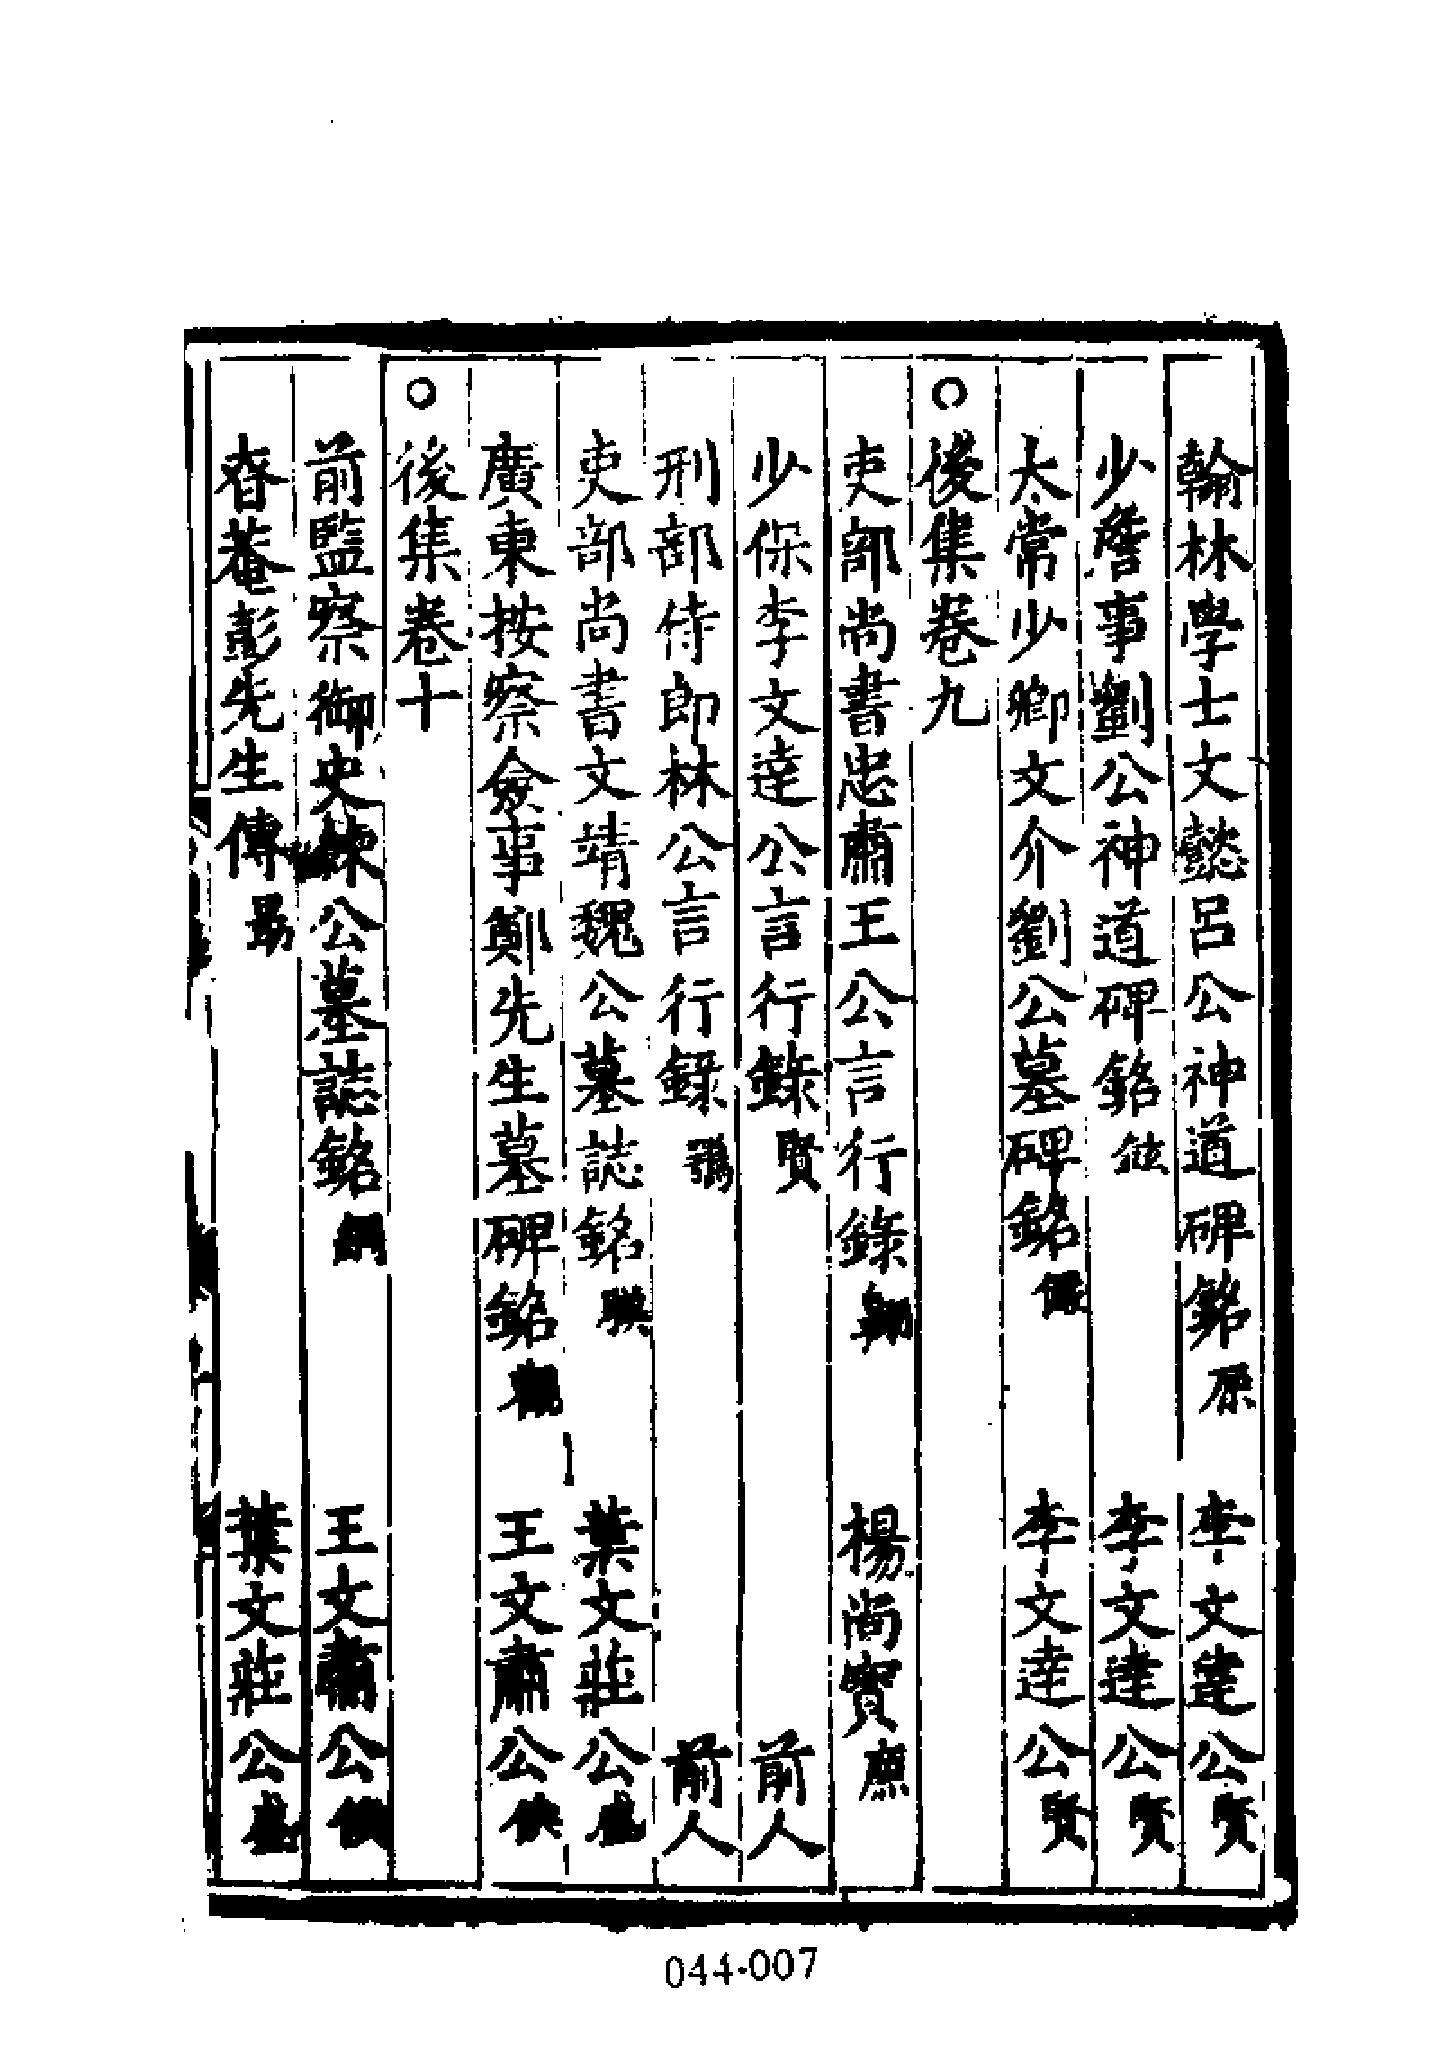 翰林學士文懿呂公神道碑銘 原 李文達公 賢
少詹事劉公神道碑銘 鉉 李文達公 賢
太常少卿文介劉公墓碑銘 儼 李文達公 賢
○後集卷九
吏部尚書忠肅王公言行錄 翱 楊尚寶 廉
少保李文達公言行錄 賢 前人
刑部侍郎林公言行錄 鶚 前人
吏部尚書文靖魏公墓誌銘 驥 葉文莊公 盛
廣東按察僉事鄭先生墓碑銘 王文肅公 㒞
○後集卷十
前監察御史練公墓誌銘 綱 王文肅公 㒞
春菴彭先生傳 勗 葉文莊公 盛
044-007